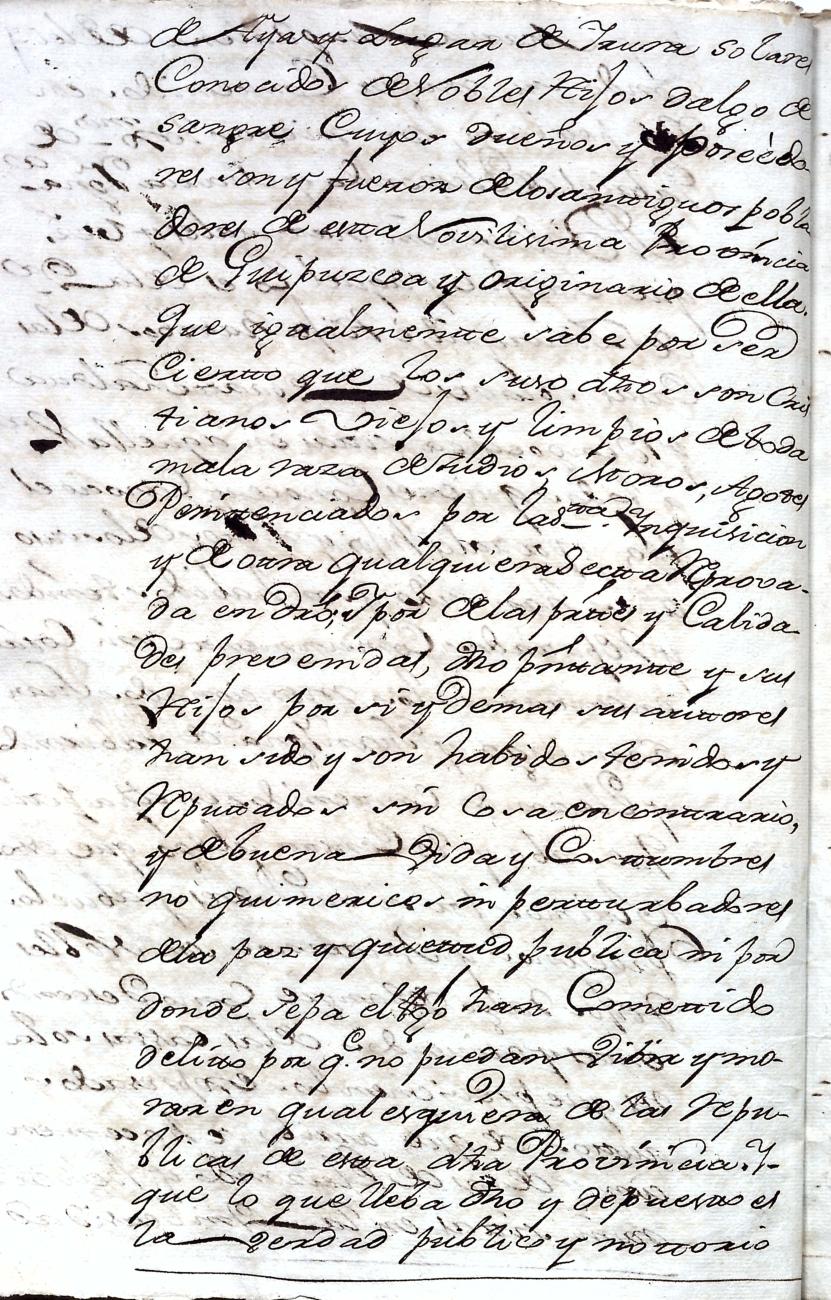 de Aya y Lugar de Yrura solares
Conocidos de Nobles Hijos dalgo de
sangre Cuyos dueños y poseedo-
res son y fueron de los anttiguos pobla
dores de estta Novilisima Provincia
de Guipuzcoa y originario de ella.
Que igualmentte sabe por ser
Ciertto que los suso dhos son Cris
tianos Viejos y limpios de toda
mala raza de Judios, Moros, Agotes
Penitenciados por la Stta Ynquisicion
y de otra qualquiera secta Reprova-
da en Dro; Y por de las parttes y Calida-
des prevenidas, dho presentante y sus
Hijos por si y demas sus auttores
han sido y son habidos tenidos y
Reputtados sin Cosa en conttrario,
y de buena Vida y Costtumbres
no quimericos ni pertturbadores
de la paz y quiettud publica ni por
donde sepa el tgo han Comettido
delitto por q.e no puedan Vibir y mo-
rar en qualesquiera de las Repu-
blicas de estta dha Provincia. Y
que lo que lleba dho y depuestto es
la verdad publico y nottorio